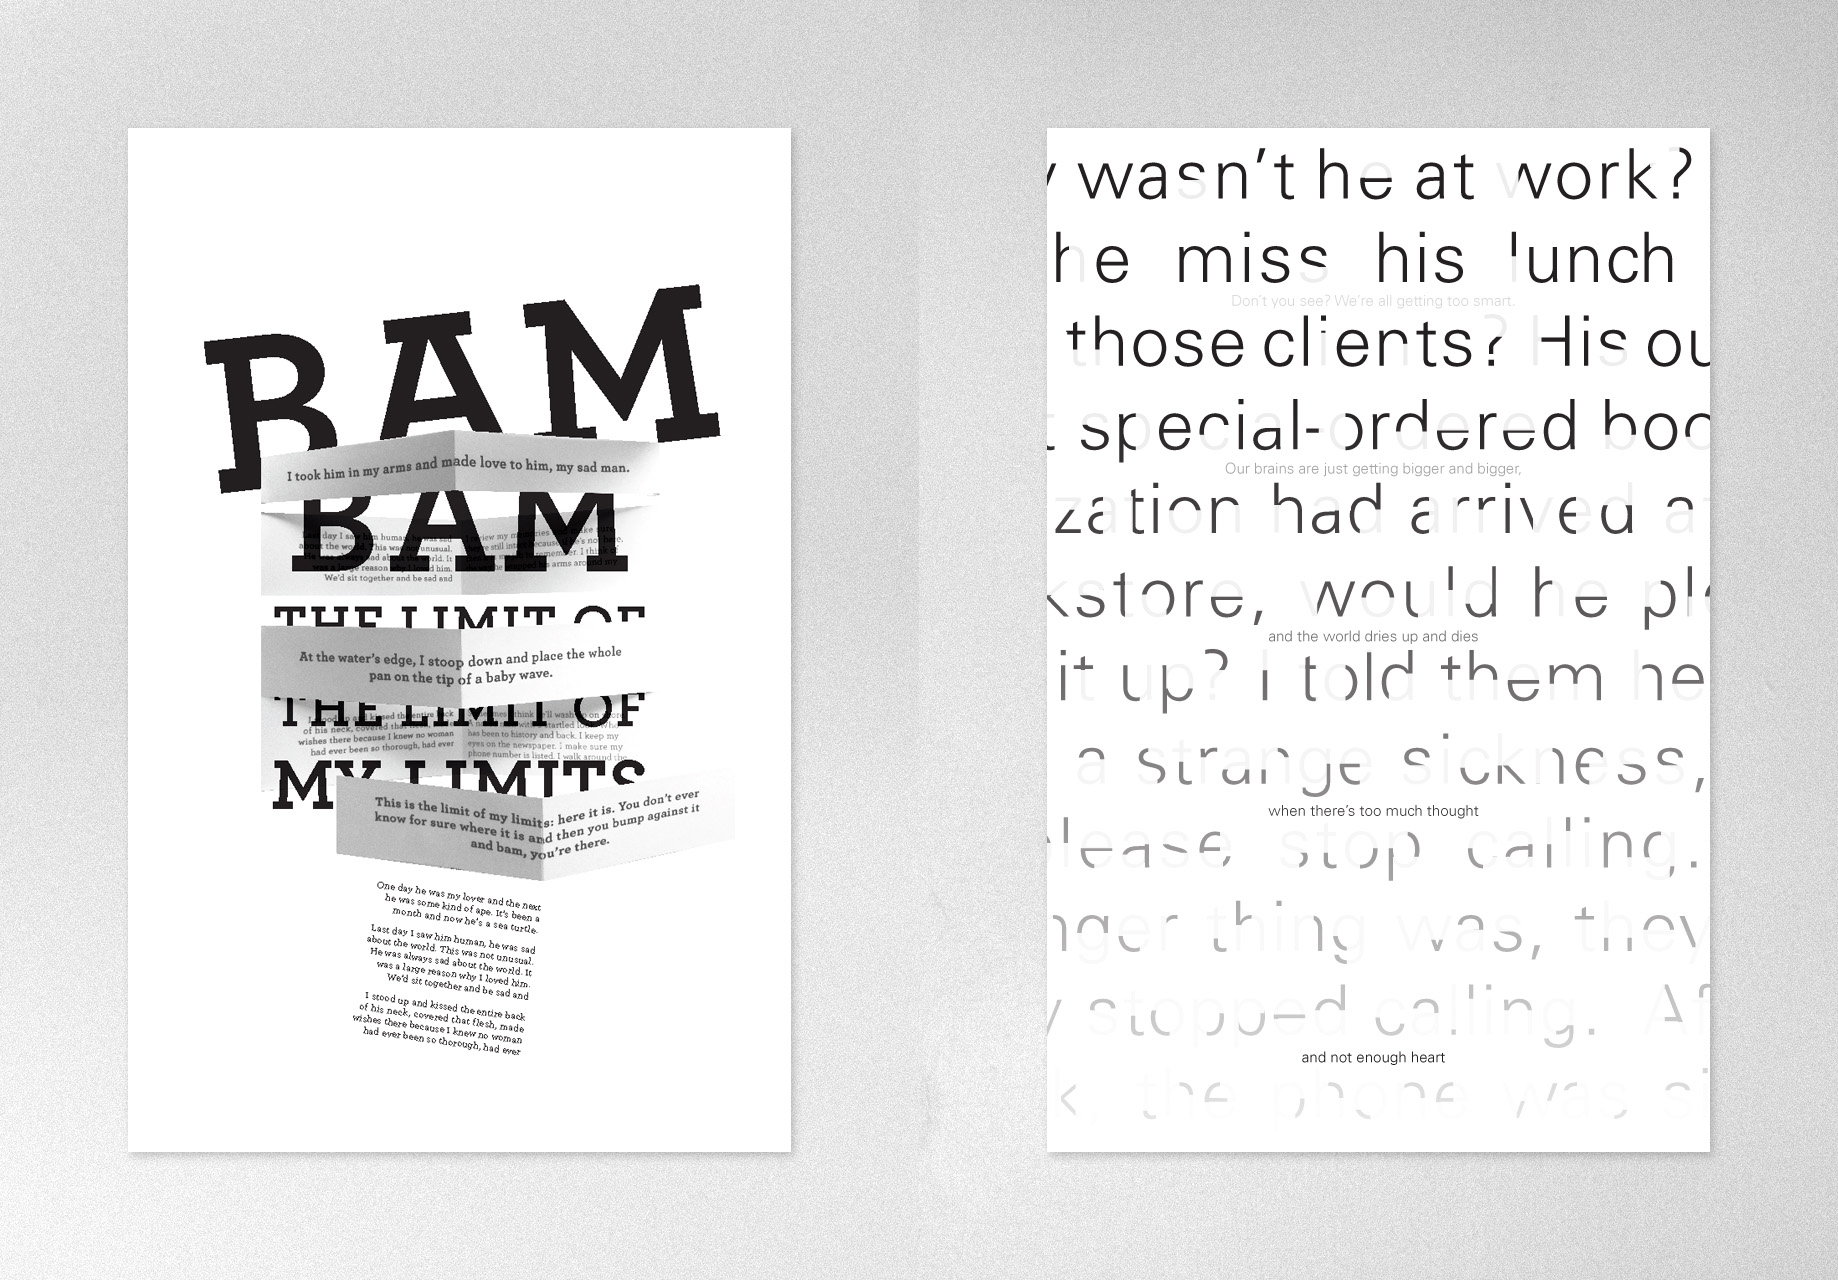 BAM
I took him in my arms and made love to him, my sad man.
BAM
Last day I saw him human, he was sad
about the world. This was not unusual.
He was always sad about the world. It
was a large reason why I loved him.
We'd sit together and be sad and
I review my memories make sure
they're still intact because if he's not here,
remember. I think of
his arms around my
THE LIMIT OF
At the water's edge, I stoop down and place the whole
pan on the tip of a baby wave.
THE LIMIT OF
I stood up and kissed the entire back
of his neck, covered that flesh, made
wishes there because I knew no woman
had ever been so thorough, had ever
Sometimes I think he'll wash up on shore
A naked man with a startled look. Who
has been to history and back. I keep my
eyes on the newspaper. I make sure my
phone number is listed. I walk around the
MY LIMITS
This is the limit of my limits: here it is. You don't ever
know for sure where it is and then you bump against it
and bam, you're there.
One day he was my lover and the next
he was some kind of ape. It's been a
month and now he's a sea turtle.
Last day I saw him human, he was sad
about the world. This was not unusual.
He was always sad about the world. It
was a large reason why I loved him.
We'd sit together and be sad and
I stood up and kissed the entire back
of his neck, covered that flesh, made
wishes there because I knew no woman
had ever been so thorough, had ever
y wasn't he at work?
he miss his lunch
Don't you see? We're all getting too smart.
those clients? His ou
t special-ordered boo
Our brains are just getting bigger and bigger,
zation had arrived at
kstore, would he ple
and the world dries up and dies
it up? I told them he
a strange sickness,
when there's too much thought
lease stop calling.
nger thing was, they
y stopped calling. Af
and not enough heart
k, the phone was si